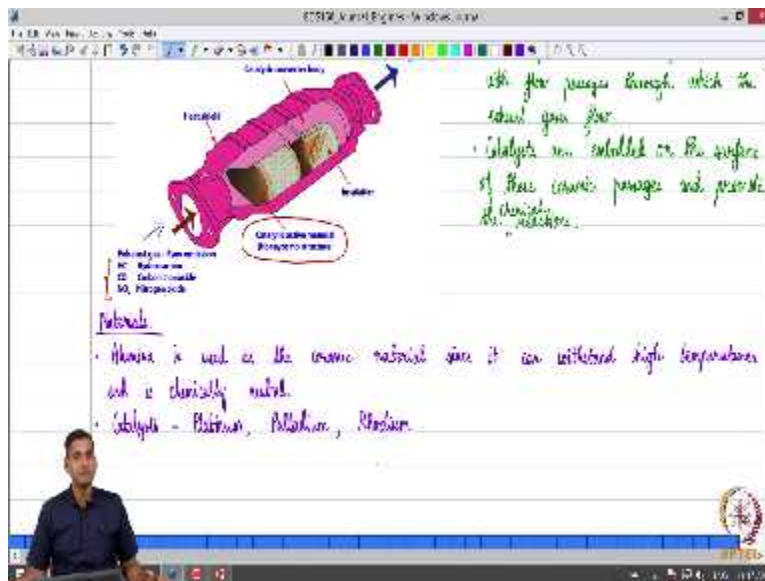 Catalytic converter body
Heat shield
Insulation
Catalytic active material
(Honeycomb structure)
Exhaust gas: Raw emission
HC Hydrocarbon
CO Carbon monoxide
NOx Nitrogen oxide
with flow passages through which the
exhaust gases flow.
• Catalysts are embedded on the surface
of these ceramic passages and promote
the chemical reactions.
Materials
• Alumina is used as the ceramic material since it can withstand high temperatures
and is chemically neutral.
• Catalysts - Platinum, Palladium, Rhodium
NPTEL